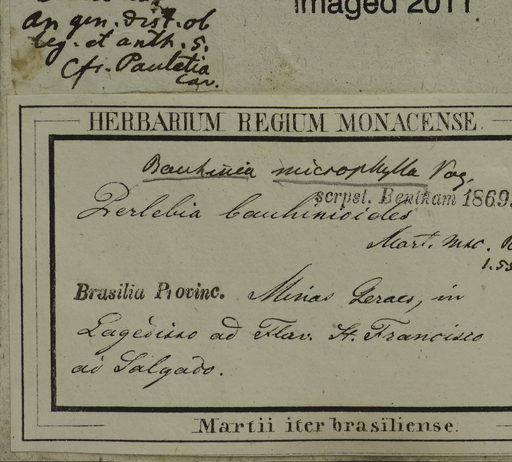 Imaged 2011
An gen. dist. ob
leg. et anth. 5.
Cfr. Pauletia
Cav.
HERBARIUM REGIUM MONACENSE.
Bauhinia microphylla Vog.
scrpst. Bentham 1869.
Perlebia bauhinioides
Mart. msc.
Brasilia Provinc. Minas Geraes, in
ad Flav. St. Francisco
ad Salgado.
Martii iter brasiliense.